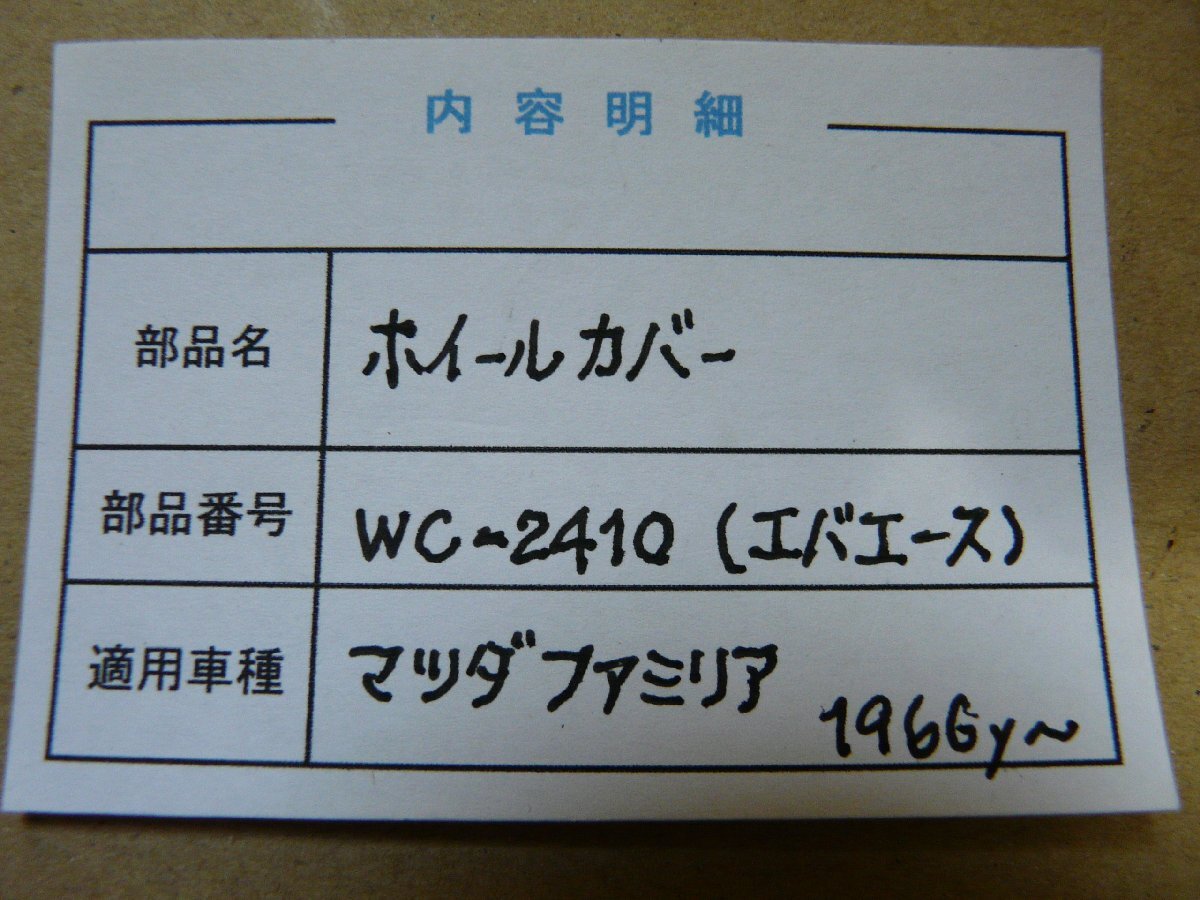 内容明細
部品名 ホイールカバー
部品番号 WC-2410 (エバエース)
適用車種 マツダファミリア
1966y~